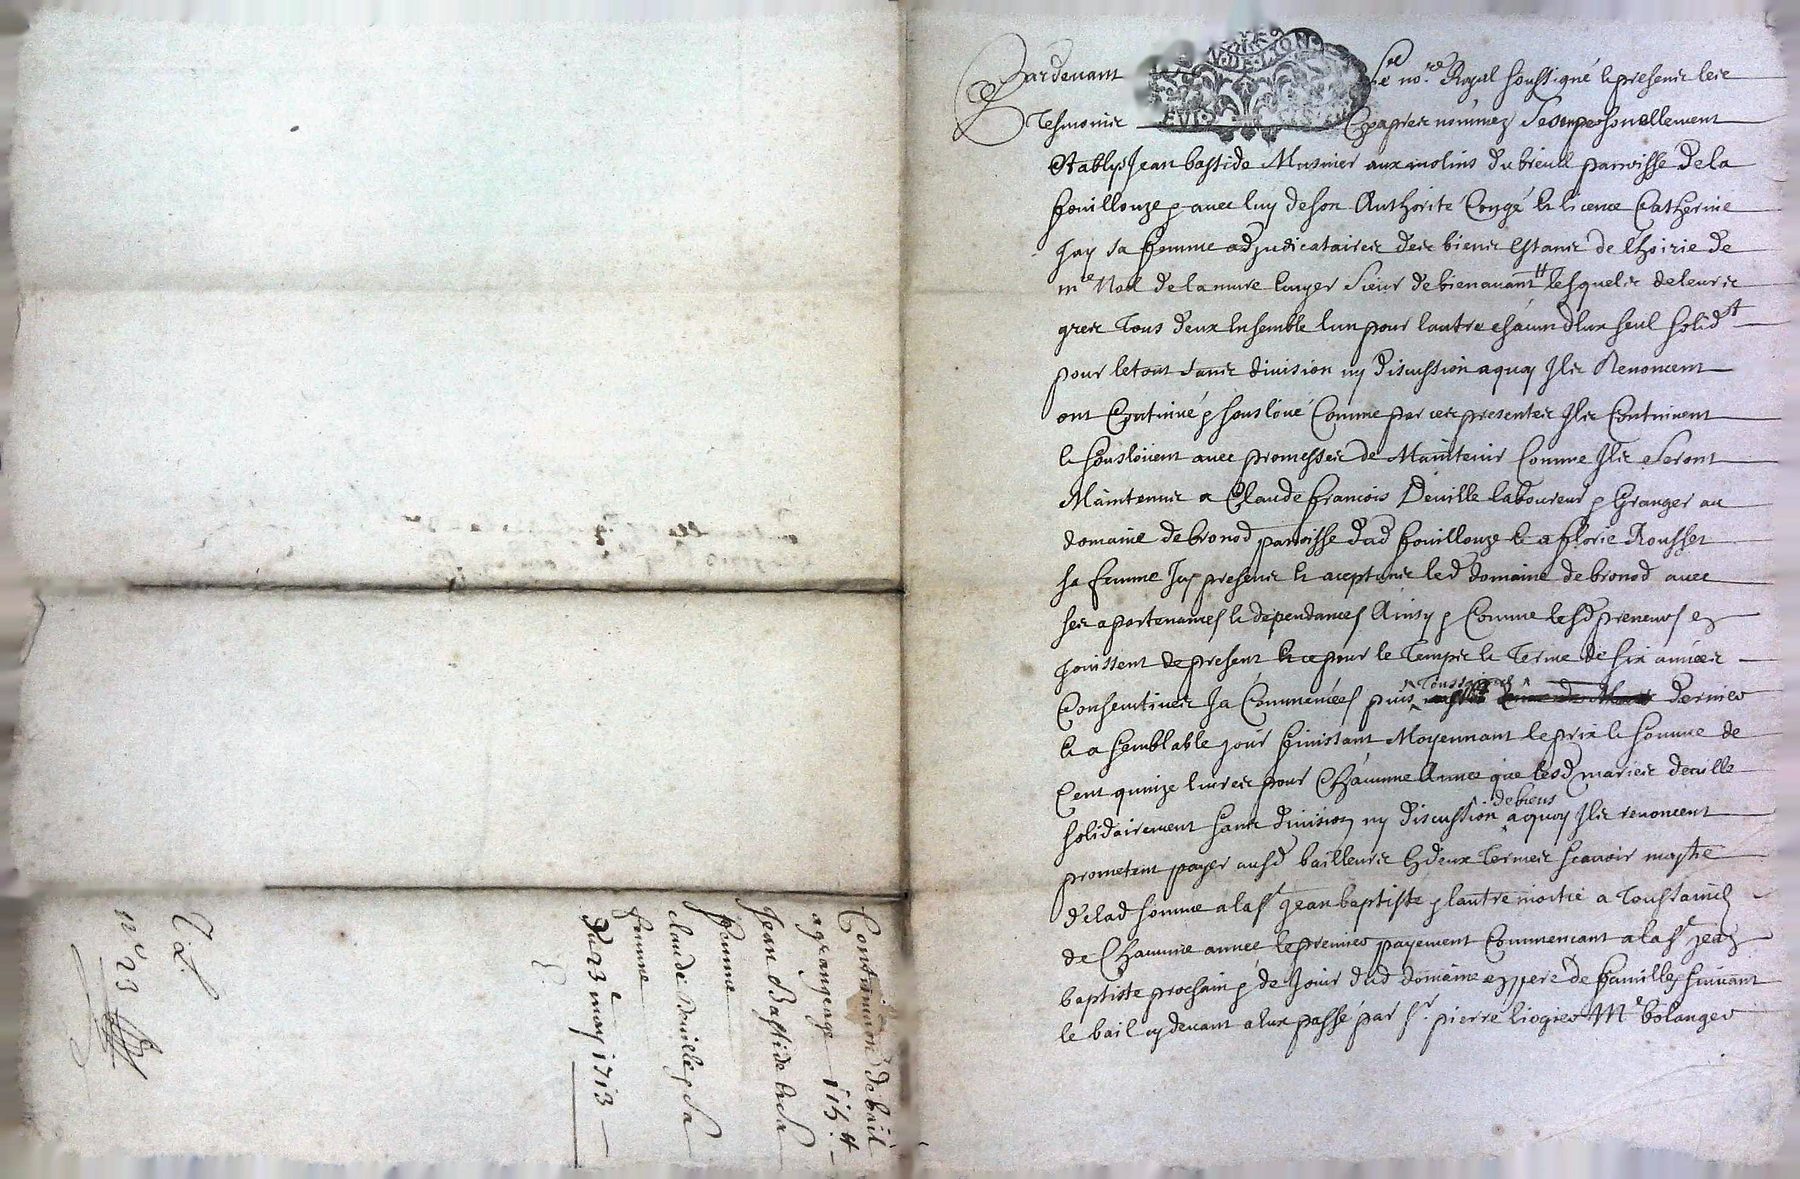 Pardevant le no.re Royal soussigné & presens les
Tesmoins cy apres nommez se son personellement
establys Jean bastide Musnier aux molins du breull parroisse de la
fouillouze & avec luy de son Authorité Congé & licence Catherine
Jay sa femme adjudicataires des biens estans de lhoirie de
m.e Noel de la mure ecuyer sieur de bienavant lesquels de leurs
grez tous deux ensemble lun pour lautre chacun deux seul solid.t
pour le tout sans division ny discussion a quoy Ils Renoncent
ont Continué & sousloué Comme par ces presentes Ils Continuent
& souslouent avec promesses de Maintenir Comme Ils seront
Maintenus a Claude francois Deville laboureur & Granger au
domaine de bronod parroisse dud fouillouze & a florie Rousset
sa femme Icy presens & aceptans led domaine de bronod avec
ses apartenances & dependances Ainsy & Comme lesd preneurs en
Jouissent de present & ce pour le Temps & Terme de six années
Consecutives Ja Commencées puis Toussaints dernier
& a semblable jour finissant Moyennant le prix & somme de
Cent quinze livres pour Chacunne Année que lesd mariés deville
solidairement sans division ny discussion de biens a quoy Ils renoncent
prometent payer ausd bailleurs En deux termes scavoir moytie
de lad somme a la s.t Jean baptiste & lautre moitié a Toussaincts
de Chacunne année le premier payement Commencant a la s.t Jean
baptiste prochain & de Jouir dud domaine en pere de famille suivant
le bail cy devant a eux passé par s.r pierre liogier M.e bolanger
Continuation de bail
a grangeage 115.tt
Jean Bastide & sa
femme
claude deville & sa
femme
Du 23.e may 1713
n.o 23